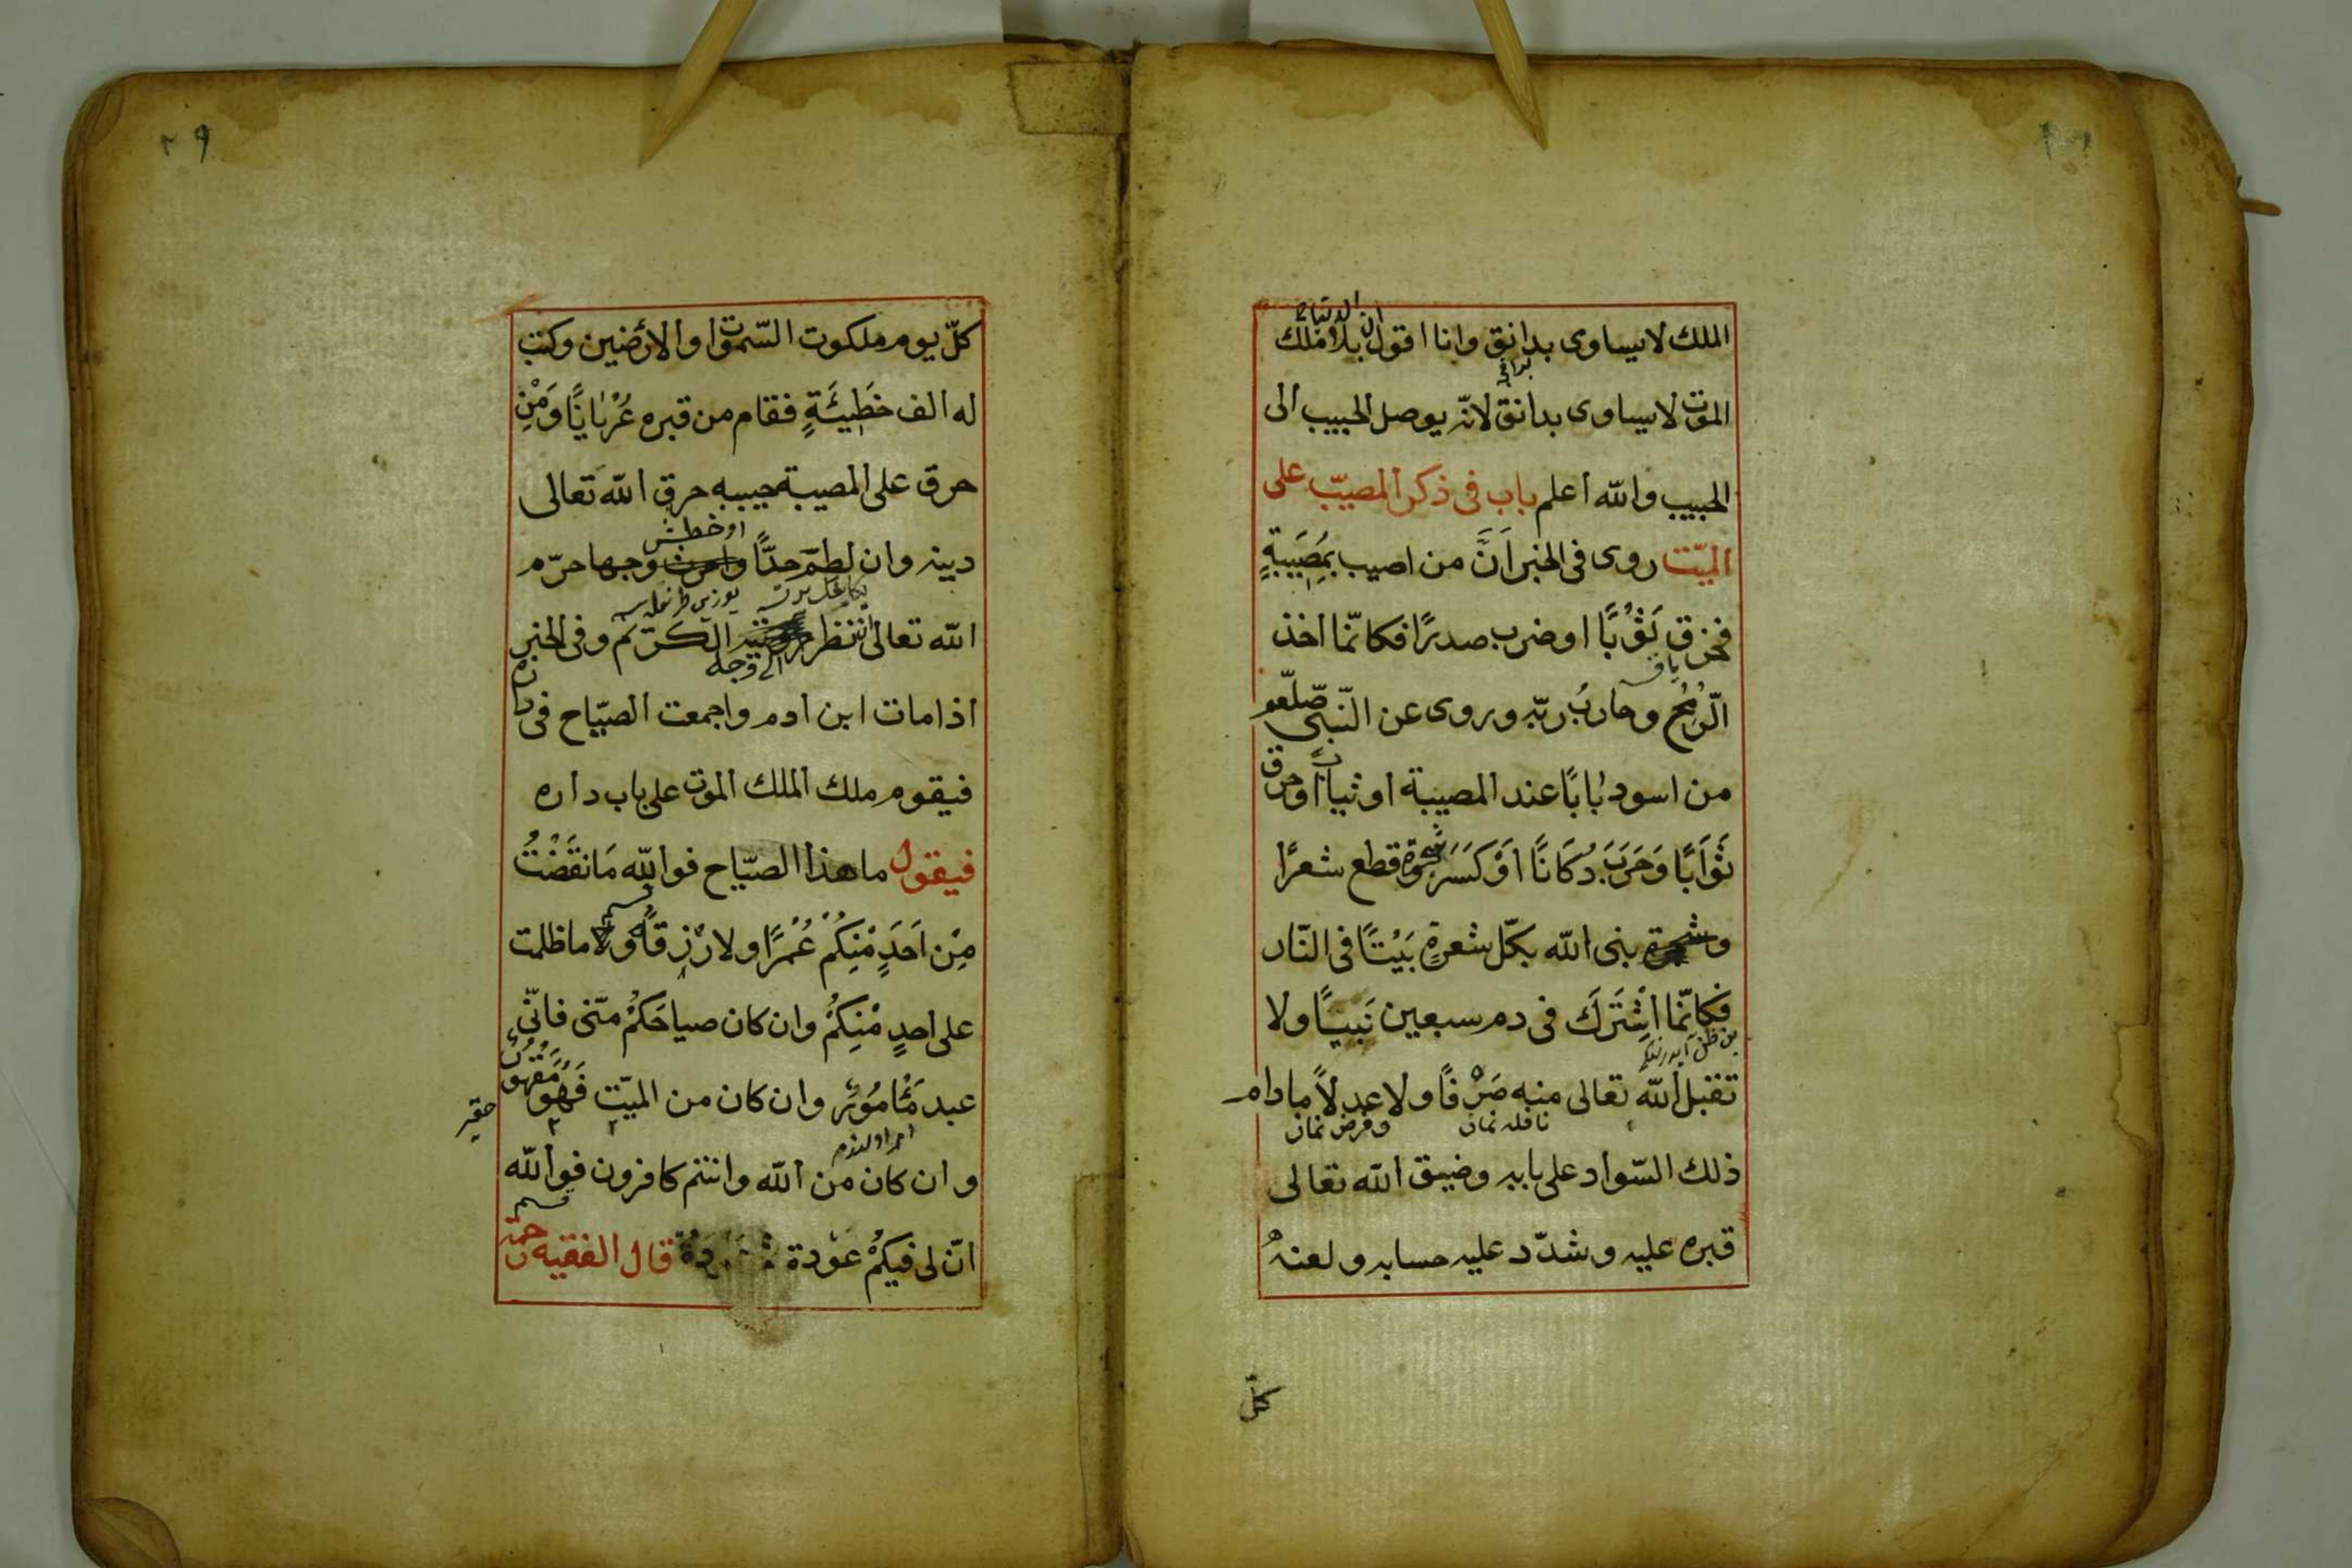 الملك لايساوى بدانق وانا اقول بلا ملك
الموت لايساوى بدانق لانّه يوصل الحبيب الى
الحبيب والله اعلم باب فى ذكر المصيبة على
الميّت روى فى الخبر اَنَّ من اصيب بمُصَيبةٍ
فخرق ثَوْبًا او ضرب صدرًا فكانّما اخذ
الرُّمْحُ وحاربُ ربّه وروى عن النّبى صلّعم
من اسود بٰابًا عند المصيبة او ثيابًا او خرق
ثَوَابًا وَخَرَبَ دُكَانًا اَوْ كَسَرَ شجرة وقطع شعرًا
بنى الله بكّل شعرةٍ بَيْتًا فى النّار
فكانّما اشْتَرَكَ فى دم سبعين نَبيًا ولا
تقبل الله تعالى منه صَرْفًا ولا عدلاً مادام
نافله نماز وفرض نماز
ذلك السّواد على بابه وضيق الله تعالى
قبره عليه وشدّد عليه حسابه ولعنهُ
كلّ
٢٩
كلّ يوم ملكوت السّموات والارضين وكتب
له الف خَطِيئَةٍ فقام من قبره عُرْيٰانًا وَمَنْ
حرق على المصيبة جيبه حرق الله تعالى
او خطش
دينه وان لطم خدًّا وجهها حرّم
الله تعالى انتظر الى وجه الكريم وفى الخبر
اذا مات ابن ادم واجمعت الصيّاح فى داره
فيقوم ملك الملك الموت على باب داره
فيقول ما هذا الصيّاح فوالله مَا نقَضْتُ
مِنْ اَحَدٍ مْنِكُمْ عُمْرًا ولا رْزِقًا ولا ما ظلمت
على احدٍ مْنِكُمْ وان كان صياحَكُمْ منّى فانّى
عبد مَأْمُورٌ وان كان من الميّت فَهُوَ مَقْهُورٌ
حقير
وان كان من الله وانتم كافرون فوالله
قسم
انّ لى فيكُمْ عَوْدة قال الفقيه رحمة